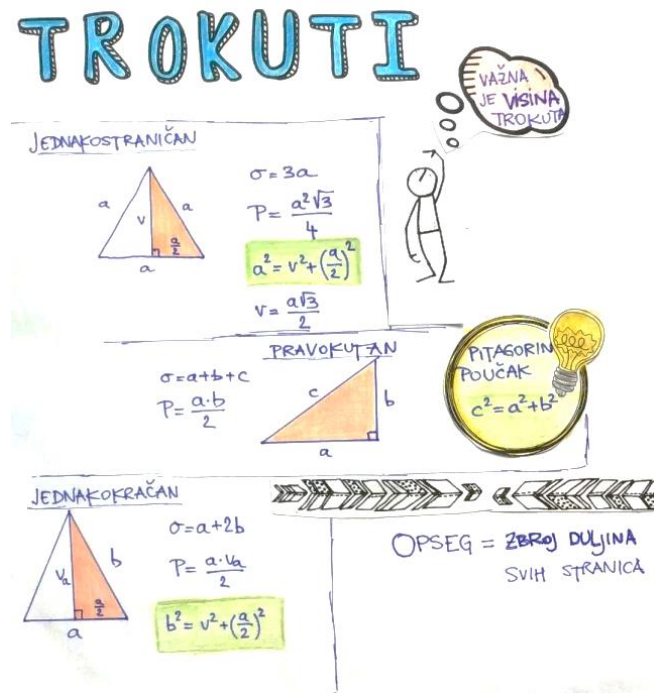 TROKUTI
VAŽNA
JE VISINA
TROKUTA
JEDNAKOSTRANIČAN
a
v
a
a/2
a
σ = 3a
P = a²√3/4
a² = v² + (a/2)²
v = a√3/2
PRAVOKUTAN
σ = a+b+c
P = a·b/2
c
b
a
PITAGORIN
POUČAK
c² = a² + b²
JEDNAKOKRAČAN
Va
b
a/2
a
σ = a+2b
P = a·Va/2
b² = v² + (a/2)²
OPSEG = ZBROJ DULJINA
SVIH STRANICA